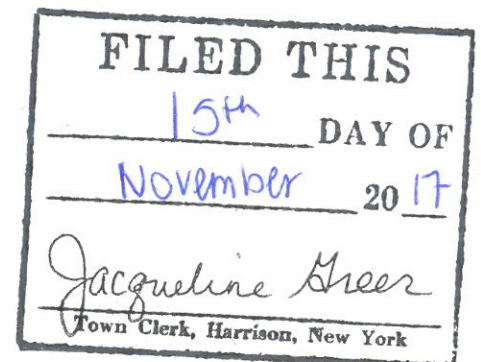 FILED THIS
15th DAY OF
November 20 17
Jacqueline Greer
Town Clerk, Harrison, New York